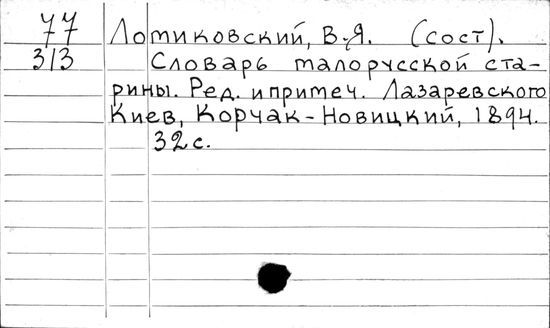 77 Ломиковский, В.Я. (сост).
313 Словарь малорусской ста-
рины. Ред. и примеч. Лазаревского
Киев, Корчак-Новицкий, 1894.
32 с.